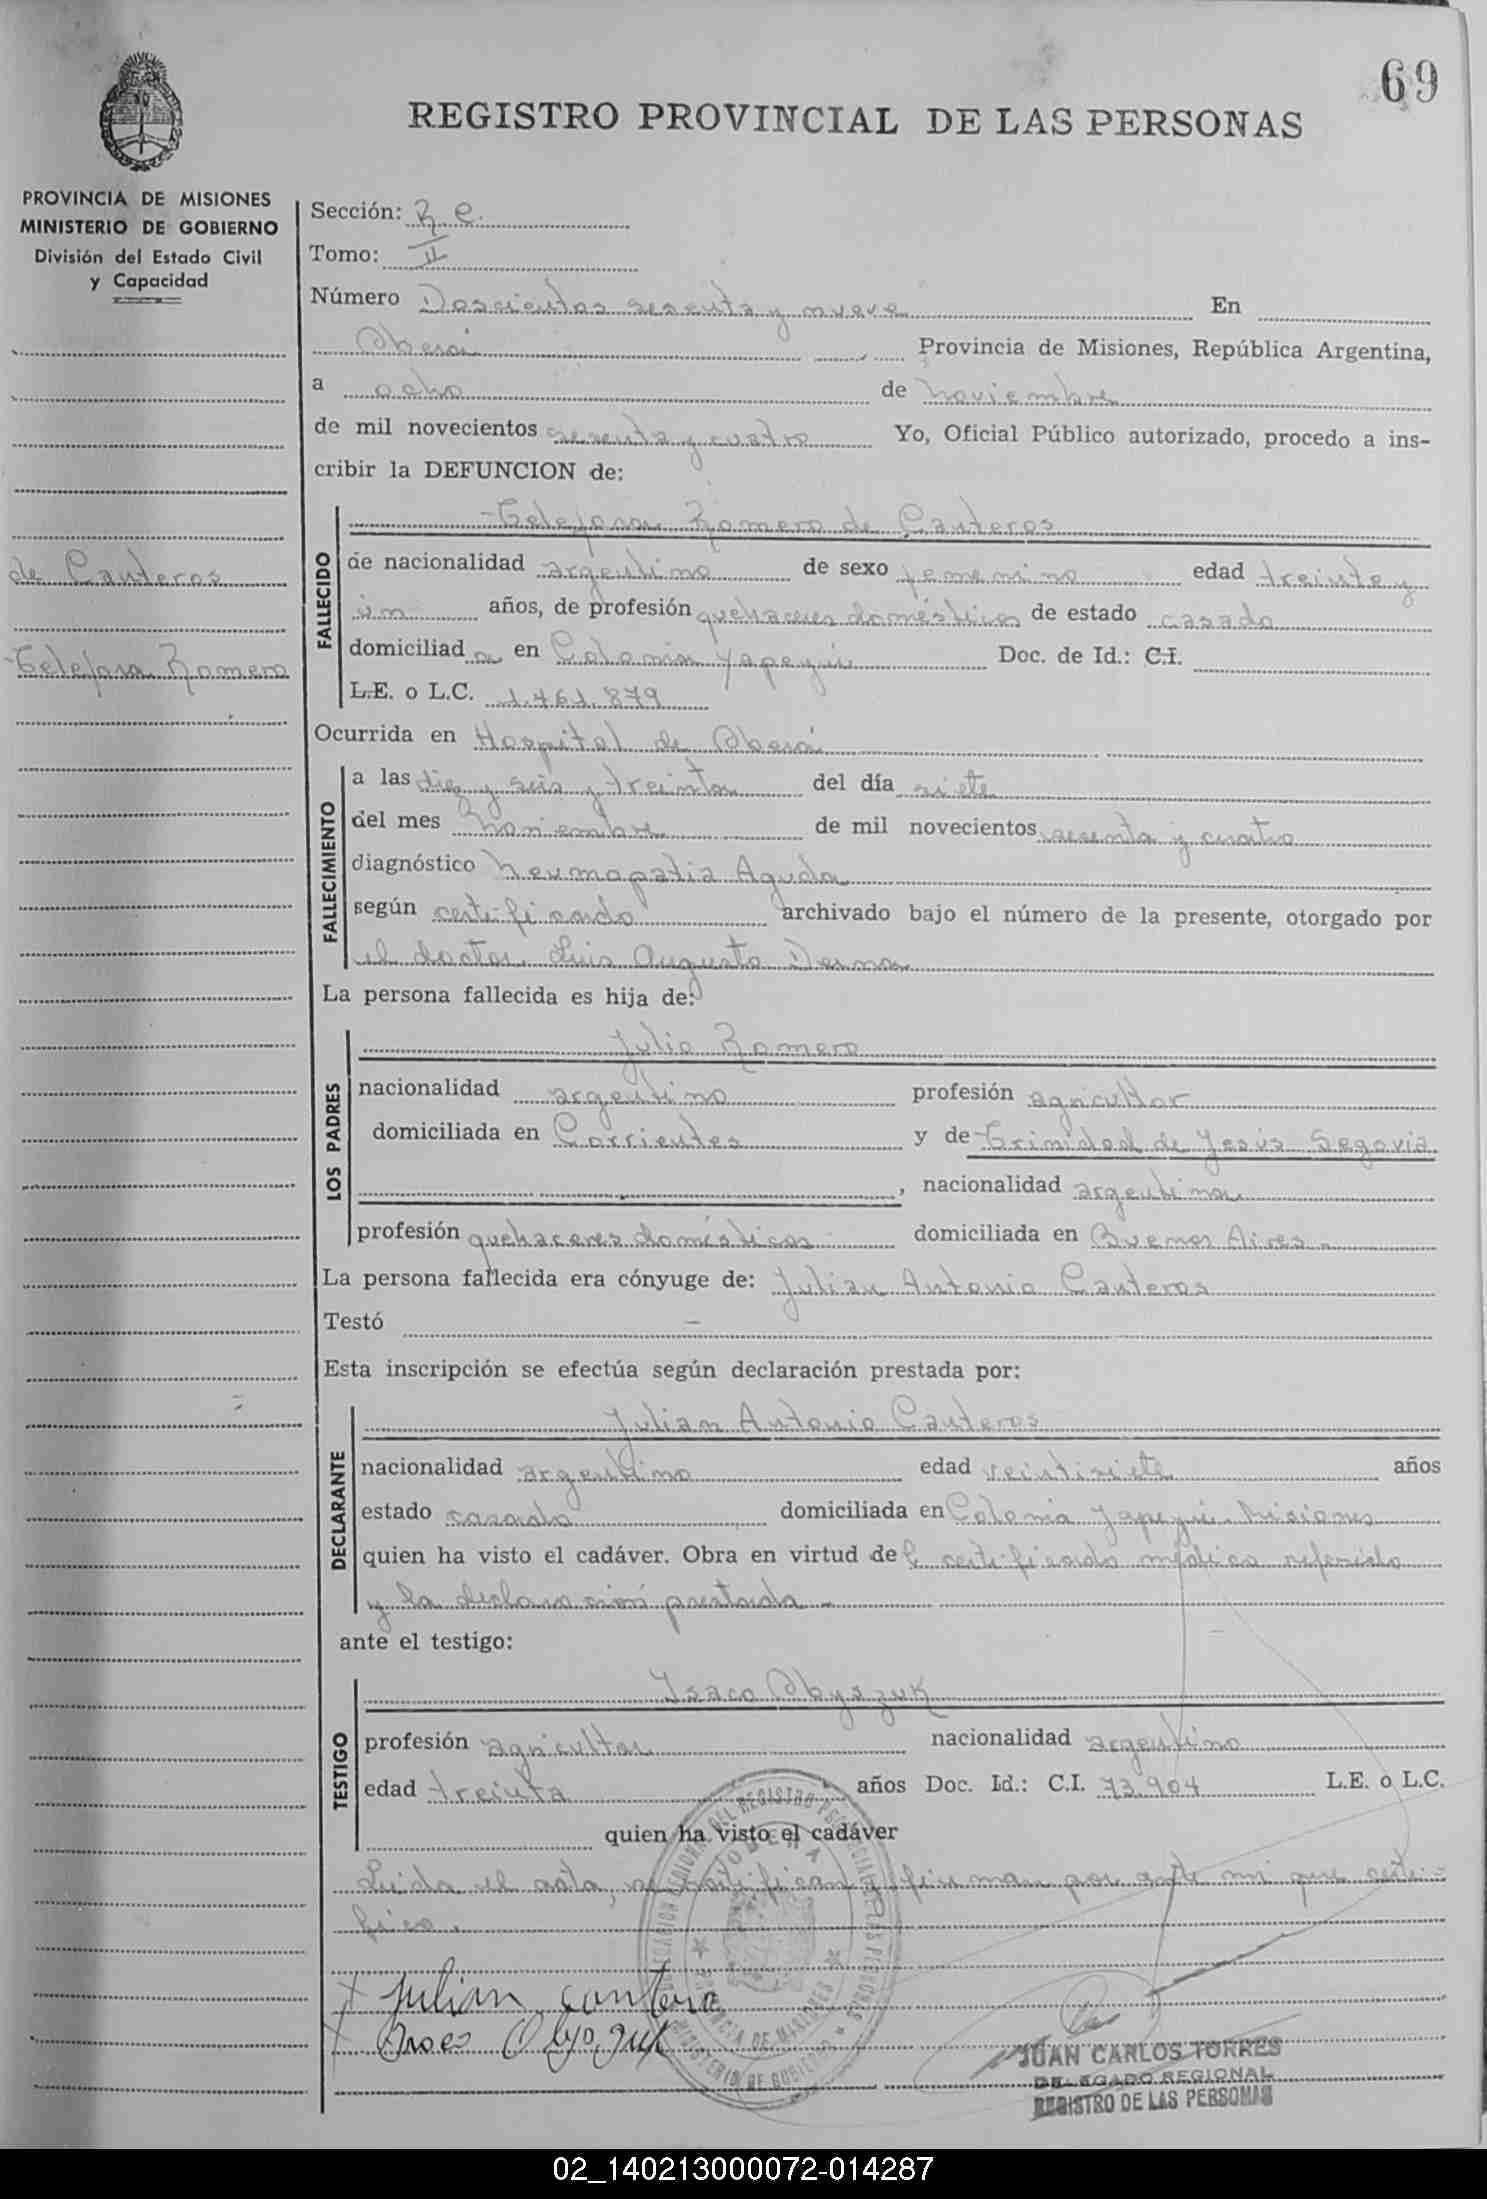 69
REGISTRO PROVINCIAL DE LAS PERSONAS
PROVINCIA DE MISIONES
MINISTERIO DE GOBIERNO
División del Estado Civil
y Capacidad
de Canteros
Telefora Romero
Sección: R e.
Tomo: II
Número Doscientos sesenta y nueve En
Oberá Provincia de Misiones, República Argentina,
a ocho de noviembre
de mil novecientos sesenta y cuatro Yo, Oficial Público autorizado, procedo a ins-
cribir la DEFUNCION de:
FALLECIDO
-Telefora Romero de Canteros
de nacionalidad argentino de sexo femenino edad treinta y
un años, de profesión quehaceres domésticos de estado casado
domiciliad a en Colonia Yapeyú Doc. de Id.: C.I.
L.E. o L.C. 1.461.879
Ocurrida en Hospital de Oberá
FALLECIMIENTO
a las diez y seis y treinta del día siete
del mes noviembre de mil novecientos sesenta y cuatro
diagnóstico Neumopatia Aguda
según certificado archivado bajo el número de la presente, otorgado por
el doctor Luis Augusto Derna
La persona fallecida es hija de:
LOS PADRES
Julio Romero
nacionalidad argentino profesión agricultor
domiciliada en Corrientes y de Trinidad de Jesús Segovia
, nacionalidad argentina
profesión quehaceres domésticos domiciliada en Buenos Aires.
La persona fallecida era cónyuge de: Julian Antonio Canteros
Testó -
Esta inscripción se efectúa según declaración prestada por:
DECLARANTE
Julian Antonio Canteros
nacionalidad argentino edad veintisiete años
estado casado domiciliada en Colonia Yapeyú. Misiones
quien ha visto el cadáver. Obra en virtud de l certificado médico referido
y la declaración prestada -
ante el testigo:
TESTIGO
Isaco Obyszuk
profesión agricultor nacionalidad argentino
edad treinta años Doc. Id.: C.I. 73.904 L.E. o L.C.
quien ha visto el cadáver
Leida el acta, la ratifican y firman por ante mi que certi-
fico.
Julian Cantero
JUAN CARLOS TORRES
DELEGADO REGIONAL
REGISTRO DE LAS PERSONAS
PROVINCIA DE MISIONES
MINISTERIO DE GOBIERNO
02_140213000072-014287